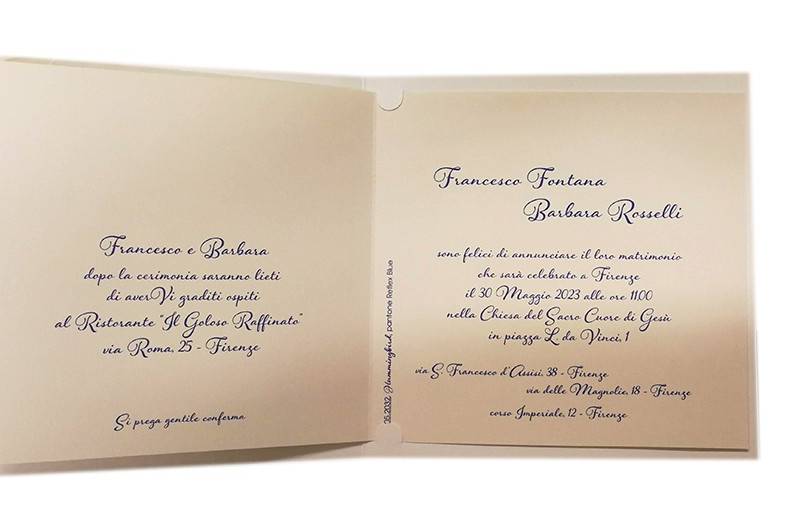 Francesco e Barbara
dopo la cerimonia saranno lieti
di averVi graditi ospiti
al Ristorante "Il Goloso Raffinato"
via Roma, 25 - Firenze
Si prega gentile conferma
35.2032 Hummingbird, pantone Reflex Blue
Francesco Fontana
Barbara Rosselli
sono felici di annunciare il loro matrimonio
che sarà celebrato a Firenze
il 30 Maggio 2023 alle ore 11,00
nella Chiesa del Sacro Cuore di Gesù
in piazza L. da Vinci, 1
via S. Francesco d'Assisi, 38 - Firenze
via delle Magnolie, 18 - Firenze
corso Imperiale, 12 - Firenze